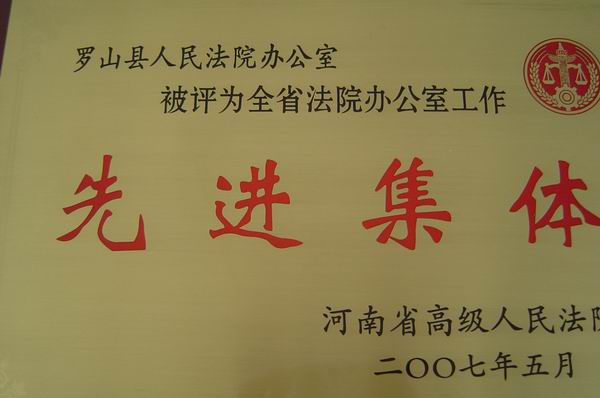 罗山县人民法院办公室
被评为全省法院办公室工作
先进集体
河南省高级人民法院
二〇〇七年五月